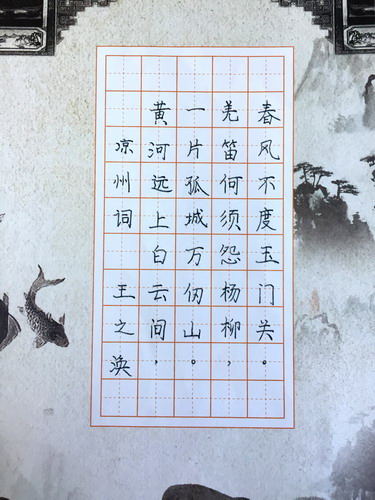 凉州词 王之涣
黄河远上白云间，
一片孤城万仞山。
羌笛何须怨杨柳，
春风不度玉门关。